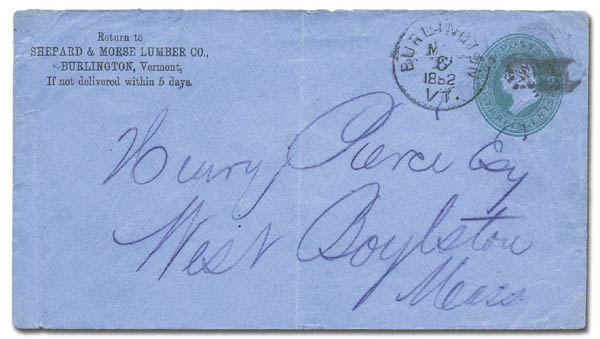 Return to
SHEPARD & MORSE LUMBER CO.,
BURLINGTON, Vermont,
If not delivered within 5 days.
BURLINGTON
1882
VT.
Henry Pierce Esq
West Boylston
Mass